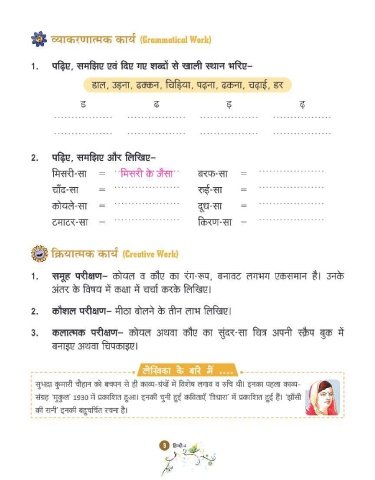 व्याकरणात्मक कार्य (Grammatical Work)
1. पढ़िए, समझिए एवं दिए गए शब्दों से खाली स्थान भरिए–
डाल, उड़ना, ढक्कन, चिड़िया, पढ़ना, ढकना, चढ़ाई, डर
ड ढ ड़ ढ़
2. पढ़िए, समझिए और लिखिए–
मिसरी-सा = मिसरी के जैसा बरफ-सा =
चाँद-सा = रुई-सा =
कोयले-सा = दूध-सा =
टमाटर-सा = किरण-सा =
क्रियात्मक कार्य (Creative Work)
1. समूह परीक्षण– कोयल व कौए का रंग-रूप, बनावट लगभग एकसमान है। उनके
अंतर के विषय में कक्षा में चर्चा करके लिखिए।
2. कौशल परीक्षण– मीठा बोलने के तीन लाभ लिखिए।
3. कलात्मक परीक्षण– कोयल अथवा कौए का सुंदर-सा चित्र अपनी स्क्रैप बुक में
बनाइए अथवा चिपकाइए।
लेखिका के बारे में ....
सुभद्रा कुमारी चौहान को बचपन से ही काव्य-ग्रंथों में विशेष लगाव व रुचि थी। इनका पहला काव्य-
संग्रह 'मुकुल' 1930 में प्रकाशित हुआ। इनकी चुनी हुई कविताएँ 'त्रिधारा' में प्रकाशित हुई हैं। 'झाँसी
की रानी' इनकी बहुचर्चित रचना है।
9 हिन्दी-4